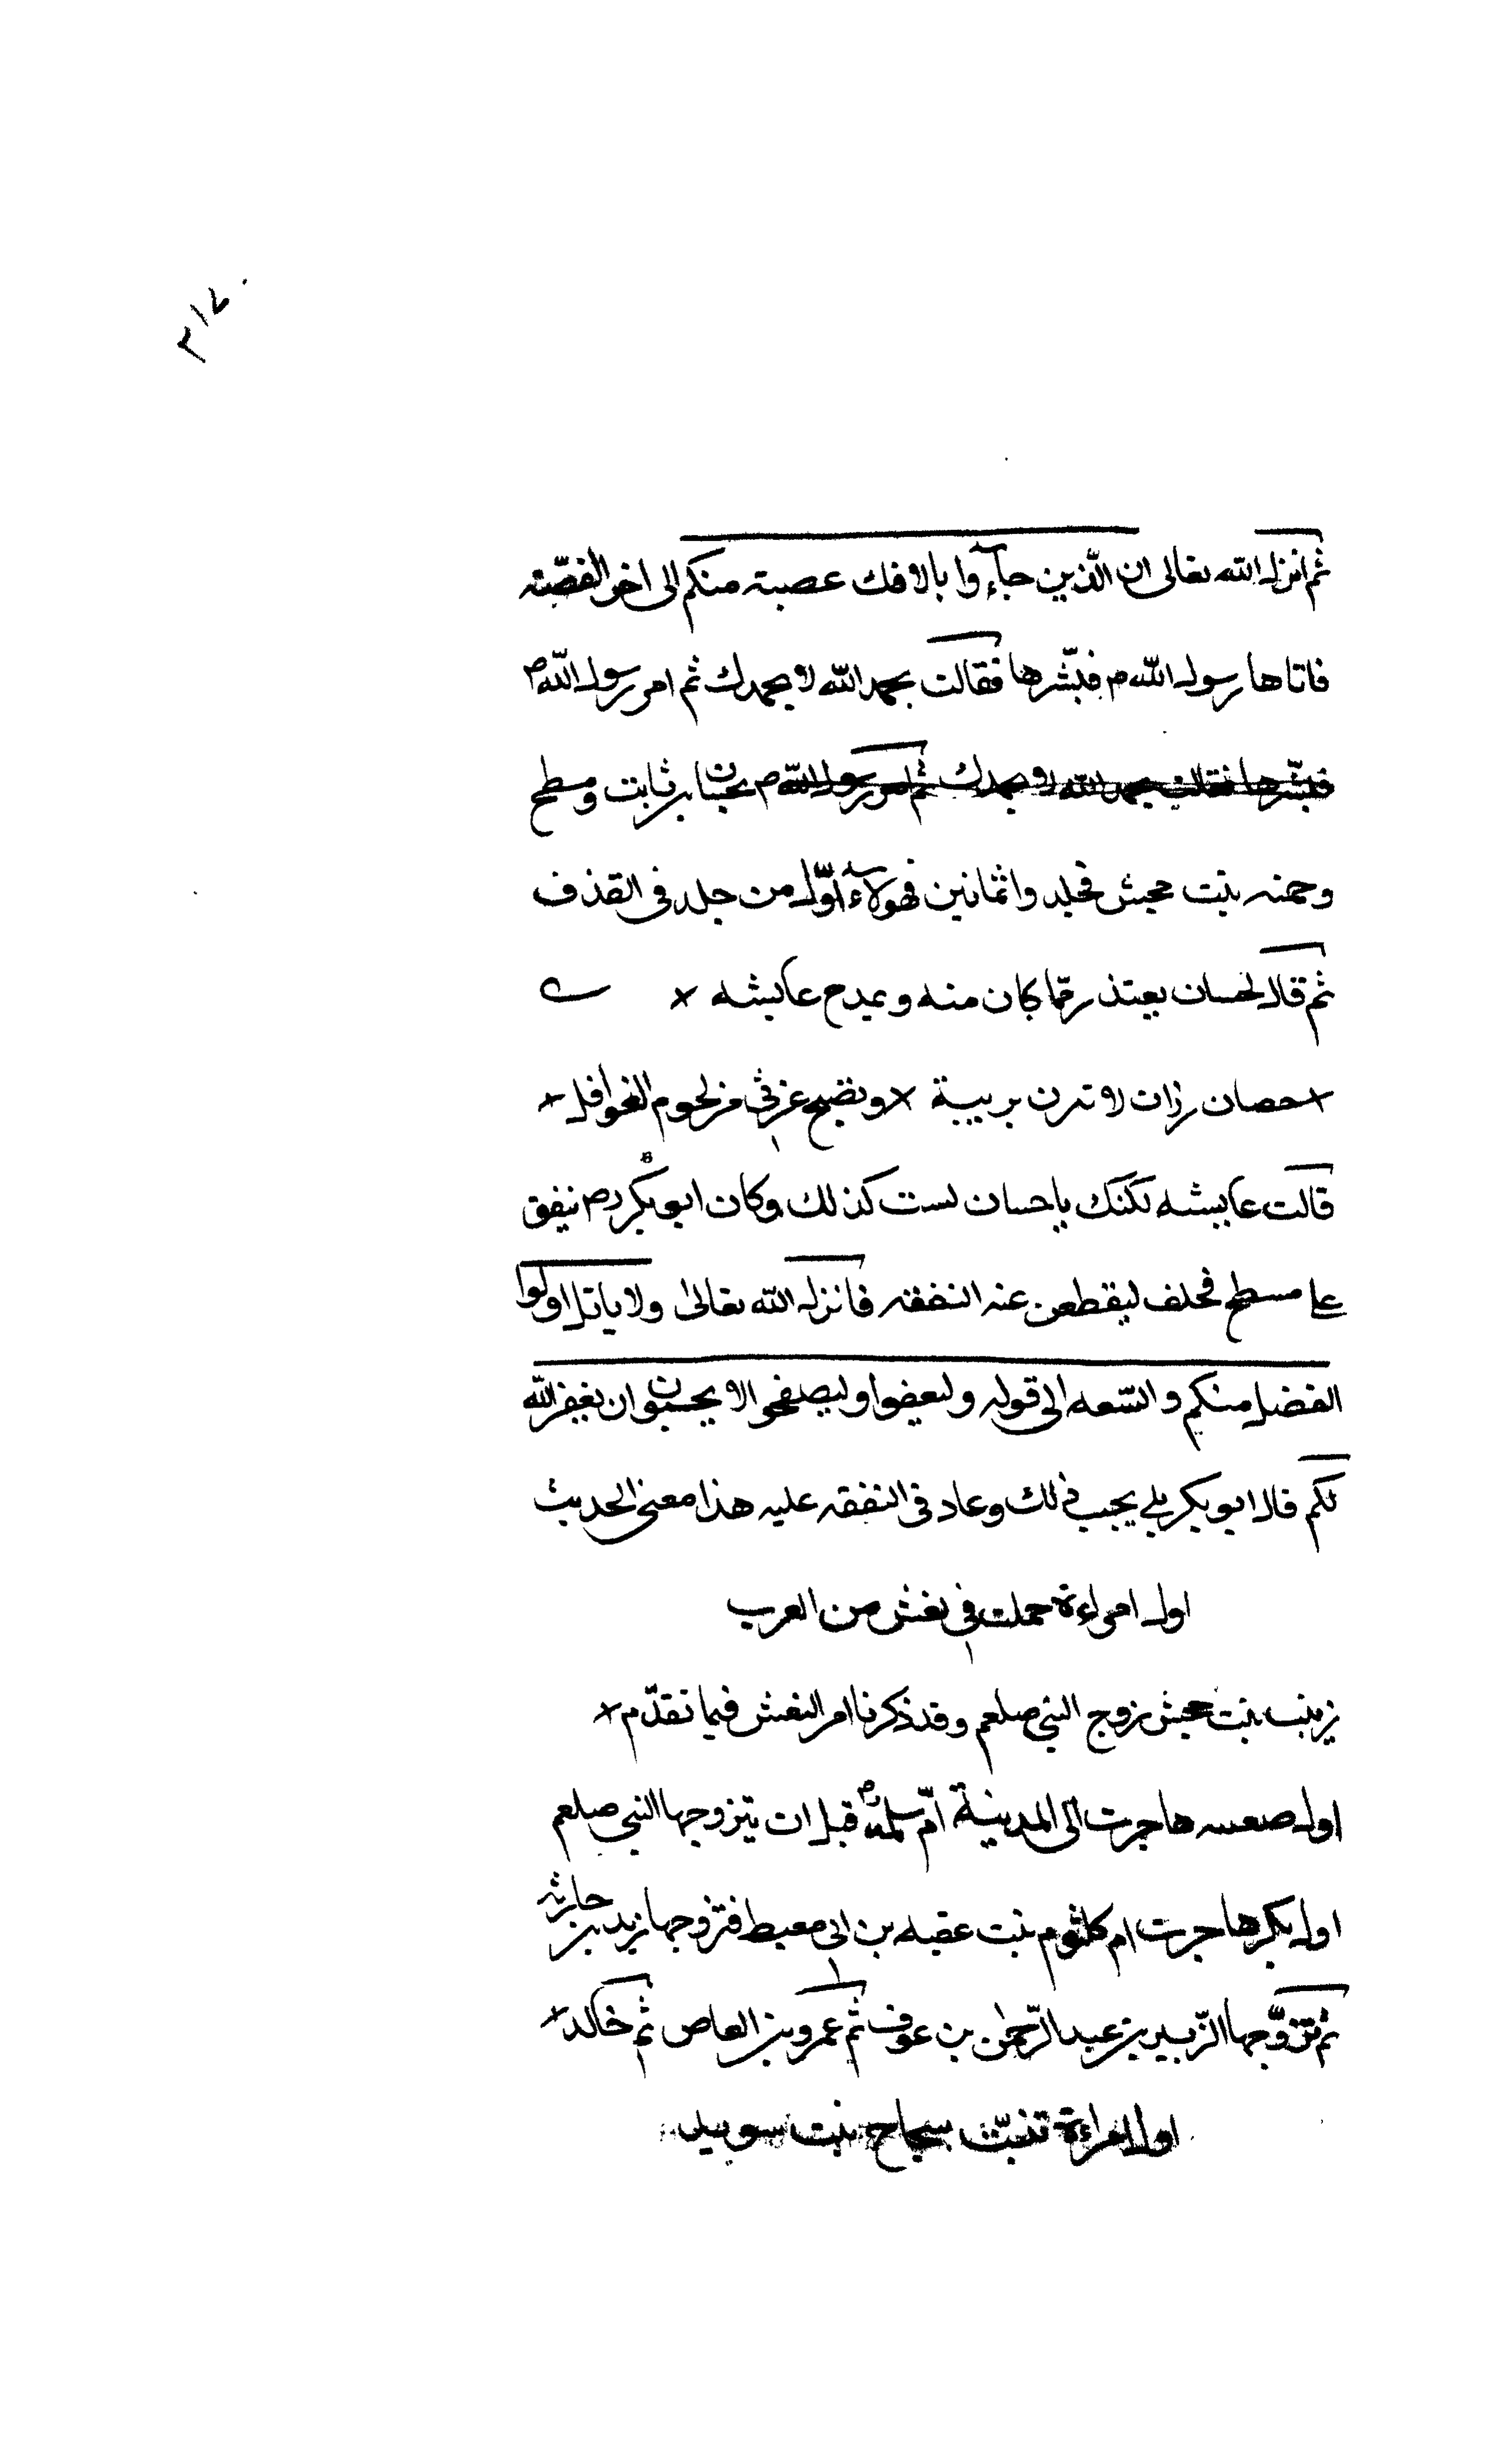 ٣١٧
ثم انزل الله تعالى ان الّذين جآءوا بالافك عصبة منكم الى اخر القصّة
فاتاها رسول الله ص فبشّرها فقالت بحمد الله لا بحمدك ثم امر رسول الله ص
فبشّرها فقالت بحمد الله لا بحمدك ثم امر رسول الله ص بحسان بن ثابت ومسطح
وحمنه بنت جحش فجلدوا ثمانين فهولآء اوّل من جلد فى القذف
ثم قال حسان يعتذر ممّا كان منه ويمدح عايشه
حصان رزان لا تزن بريبة وتصبح غرثى من لحوم الغوافل
قالت عايشه لكنك ياحسان لست كذلك وكان ابو بكر رض ينفق
على مسطح فحلف ليقطعن عنه النفقه فانزل الله تعالى ولا ياتل اولوا
الفضل منكم والسّعه الى قوله وليعفوا وليصفحوا الا يحبون ان يغفر الله
لكم قال ابو بكر بلى يجب ذلك وعاد فى النفقه عليه هذا معنى الحديث
اول امراءة حملت فى نعش من العرب
زينب بنت جحش زوج النبى صلعم وقد ذكرنا امر النعش فيما تقدّم
اول هاجرت الى المدينة امّ سلمة قبل ان يتزوجها النبى صلعم
اول بكر هاجرت ام كلثوم بنت عقبه بن ابى معيط فتزوجها زيد بن حارثه
ثم تزوّجها الزّبير بن عبد الرّحمن بن عوف ثم عمرو بن العاص ثم خالد
اول امراءة تنبّت سجاح بنت سويد